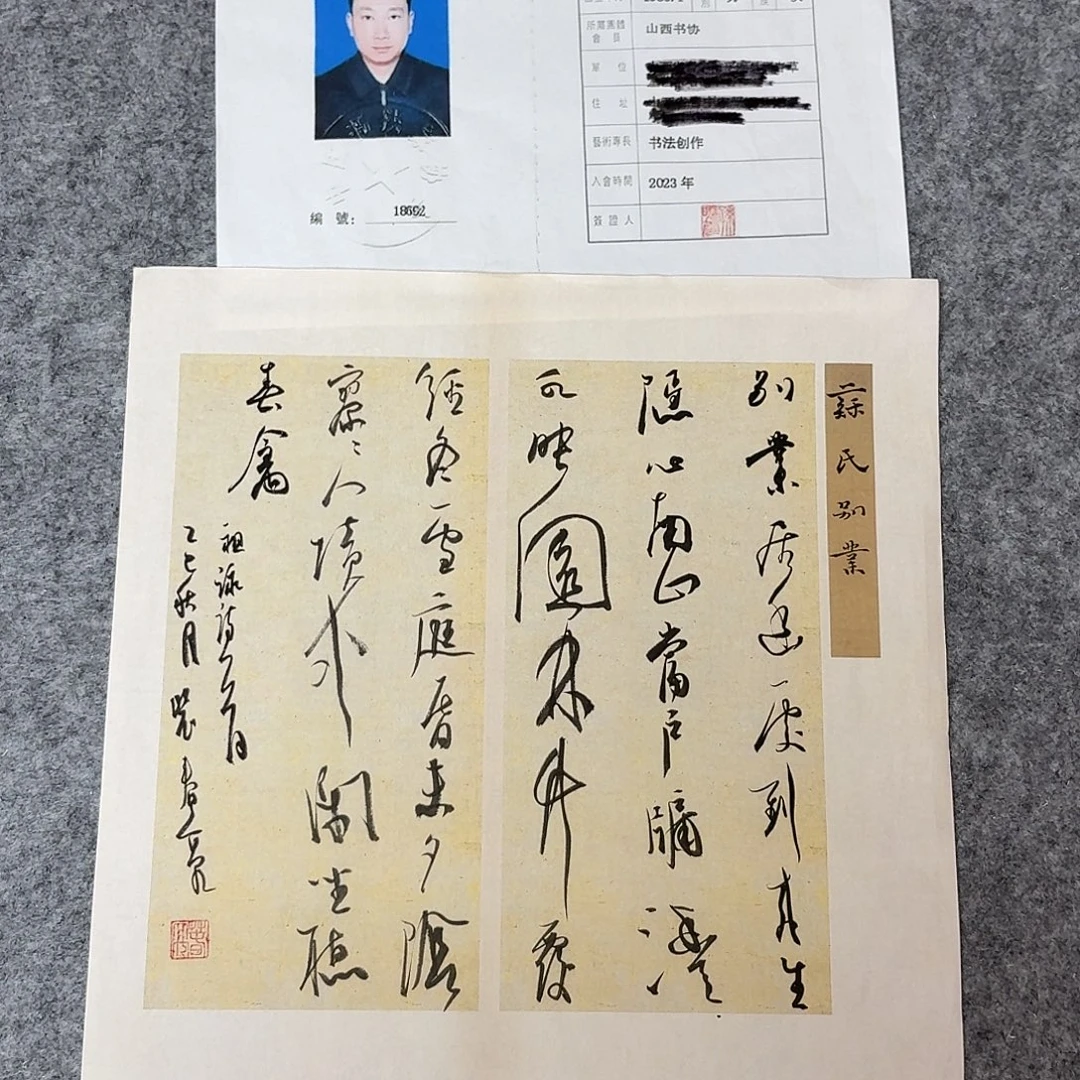 所屬團體
會長 山西书协
單位
住址
藝術專長 书法创作
入會時間 2023 年
簽證人
編號:
蘇氏别業
别業居幽處到来生
隱心南山當户牖灃
水映園林竹覆
經冬雪庭昏未夕陰
寥〻人境外閑坐聽
春禽
祖詠詩一首
乙巳秋月